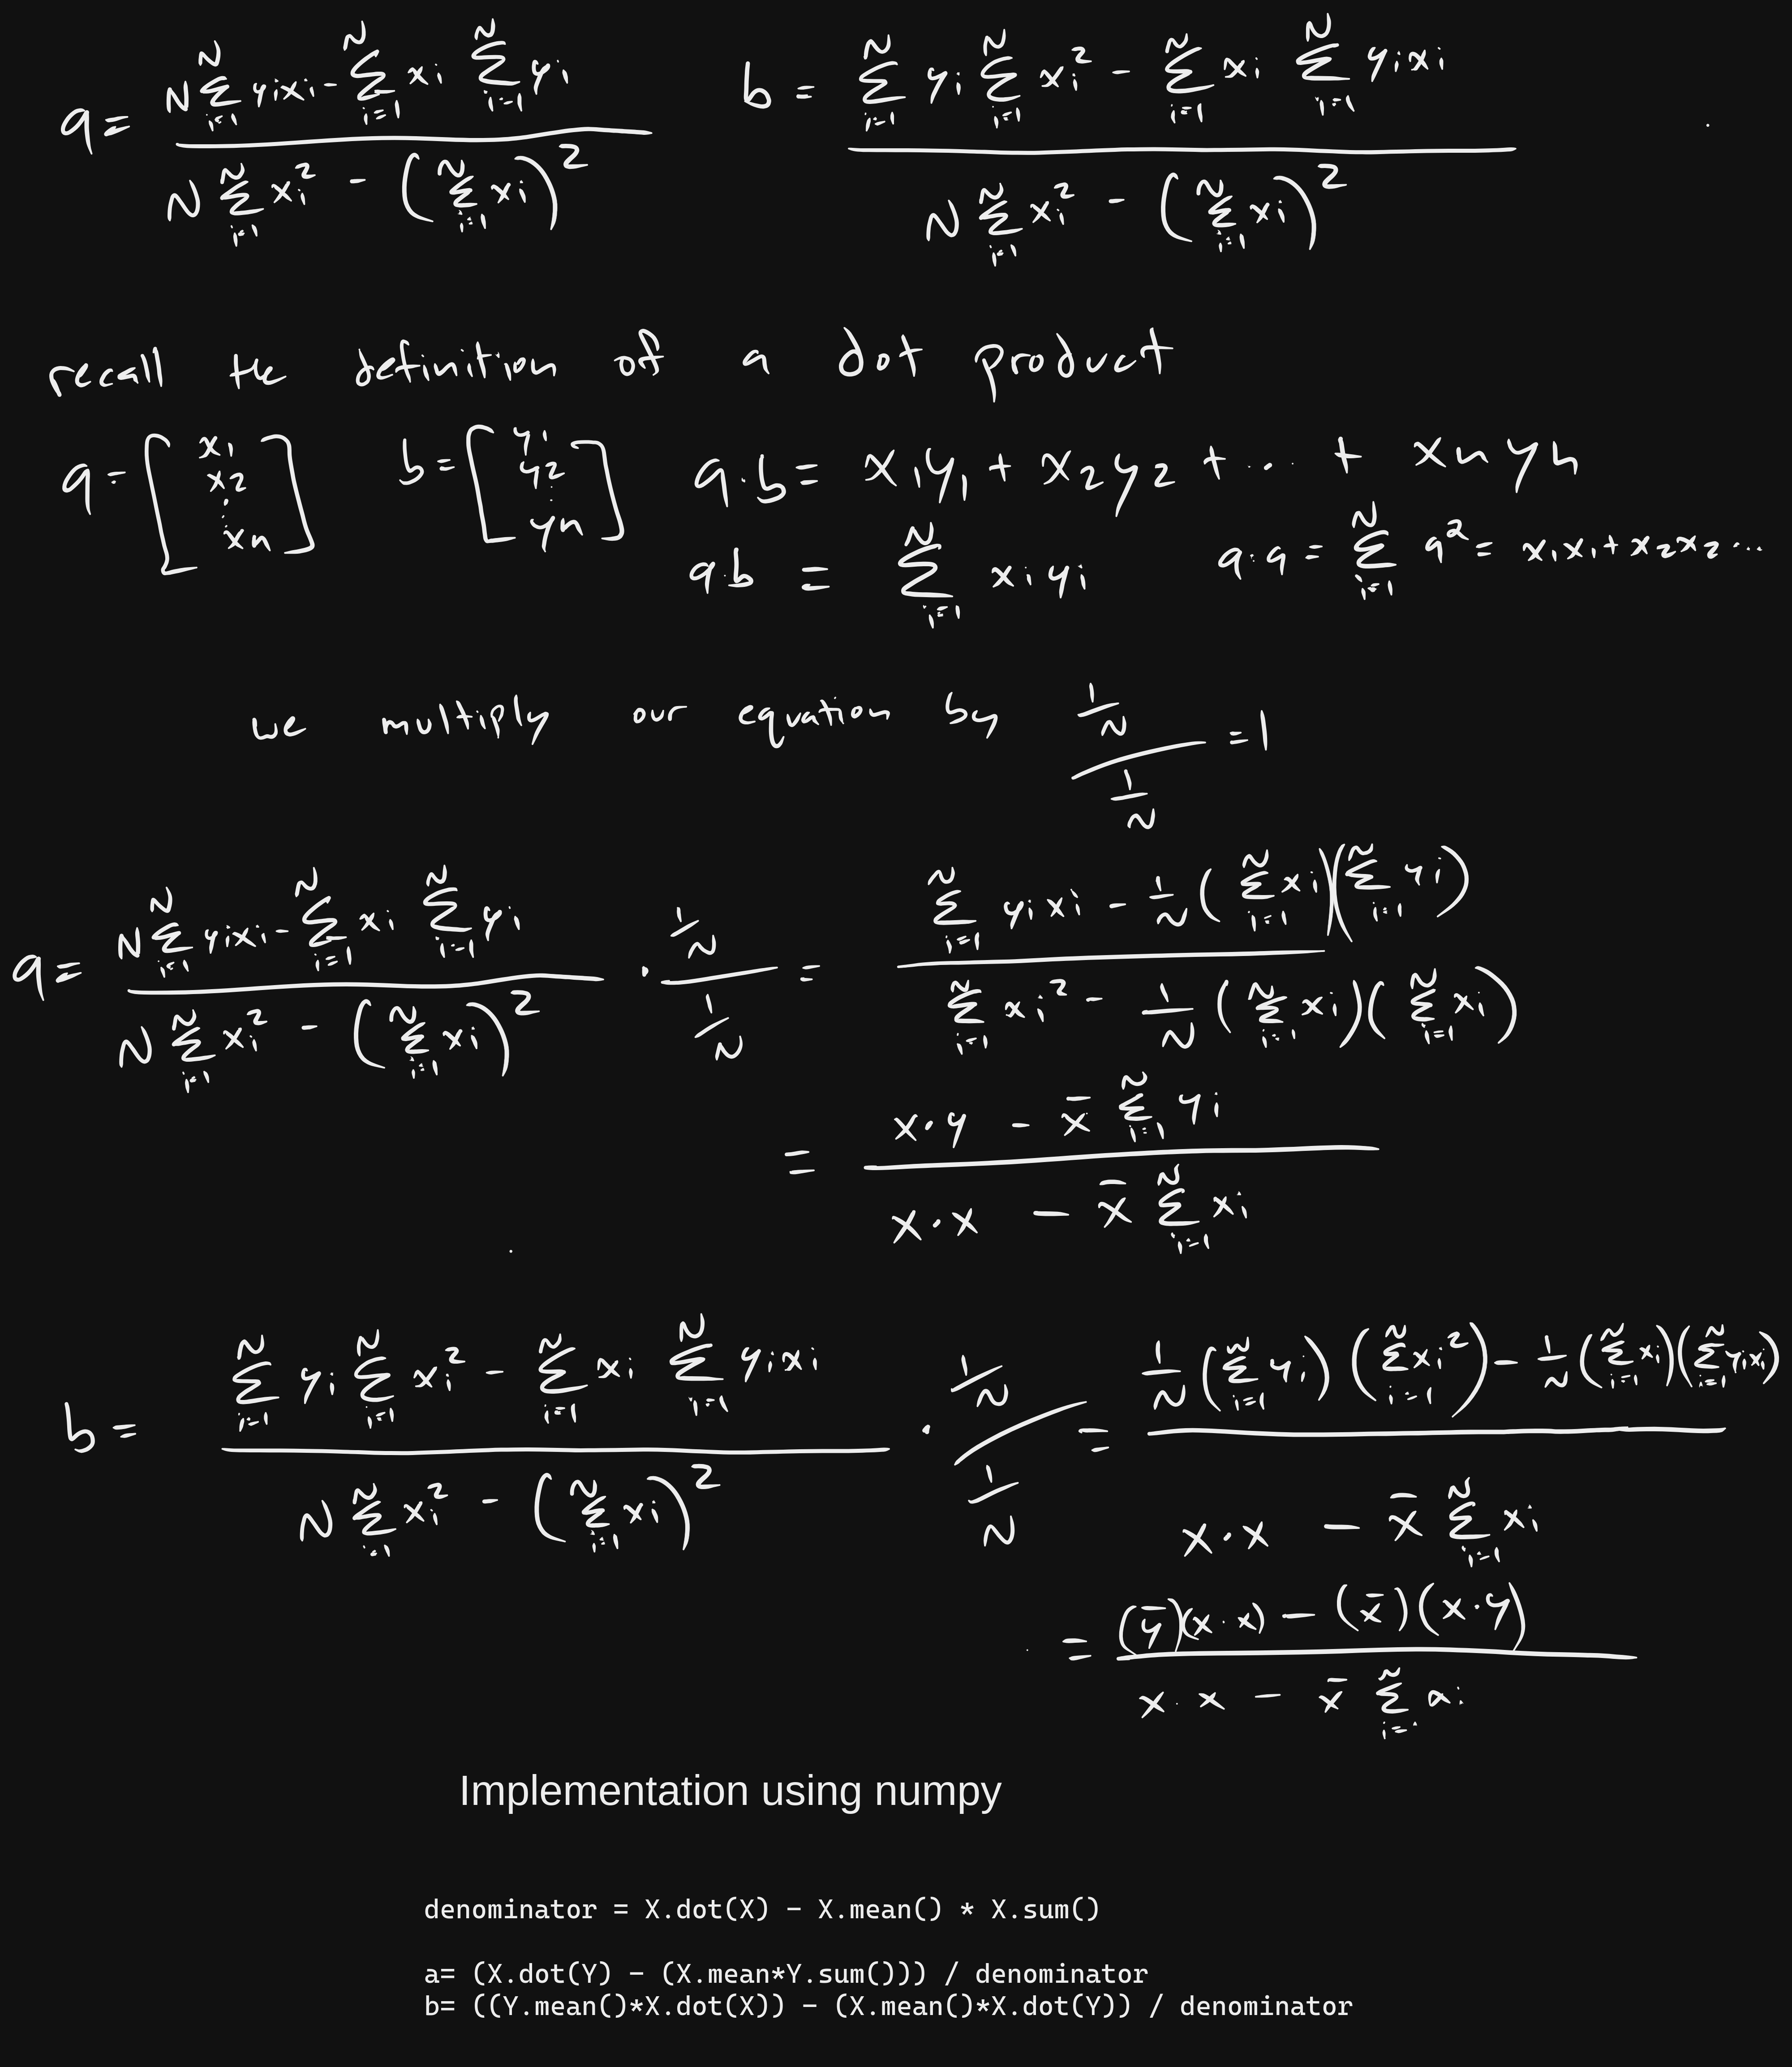 a = (N Σ_{i=1}^{N} yᵢxᵢ - Σ_{i=1}^{N} xᵢ Σ_{i=1}^{N} yᵢ) / (N Σ_{i=1}^{N} xᵢ² - (Σ_{i=1}^{N} xᵢ)²)
b = (Σ_{i=1}^{N} yᵢ Σ_{i=1}^{N} xᵢ² - Σ_{i=1}^{N} xᵢ Σ_{i=1}^{N} yᵢxᵢ) / (N Σ_{i=1}^{N} xᵢ² - (Σ_{i=1}^{N} xᵢ)²)
recall the definition of a dot product
a = [x₁ x₂ ⋮ xn] b = [y₁ y₂ ⋮ yn] a·b = x₁y₁ + x₂y₂ + ... + xnyn
a·b = Σ_{i=1}^{N} xᵢyᵢ a·a = Σ_{i=1}^{N} a² = x₁x₁ + x₂x₂...
we multiply our equation by (1/N)/(1/N) = 1
a = (N Σ_{i=1}^{N} yᵢxᵢ - Σ_{i=1}^{N} xᵢ Σ_{i=1}^{N} yᵢ) / (N Σ_{i=1}^{N} xᵢ² - (Σ_{i=1}^{N} xᵢ)²) · (1/N)/(1/N) = (Σ_{i=1}^{N} yᵢxᵢ - 1/N (Σ_{i=1}^{N} xᵢ)(Σ_{i=1}^{N} yᵢ)) / (Σ_{i=1}^{N} xᵢ² - 1/N (Σ_{i=1}^{N} xᵢ)(Σ_{i=1}^{N} xᵢ))
= (x·y - x̄ Σ_{i=1}^{N} yᵢ) / (x·x - x̄ Σ_{i=1}^{N} xᵢ)
b = (Σ_{i=1}^{N} yᵢ Σ_{i=1}^{N} xᵢ² - Σ_{i=1}^{N} xᵢ Σ_{i=1}^{N} yᵢxᵢ) / (N Σ_{i=1}^{N} xᵢ² - (Σ_{i=1}^{N} xᵢ)²) · (1/N)/(1/N) = (1/N (Σ_{i=1}^{N} yᵢ)(Σ_{i=1}^{N} xᵢ²) - 1/N (Σ_{i=1}^{N} xᵢ)(Σ_{i=1}^{N} yᵢxᵢ)) / (x·x - x̄ Σ_{i=1}^{N} xᵢ)
= ((ȳ)(x·x) - (x̄)(x·y)) / (x·x - x̄ Σ_{i=1}^{N} xᵢ)
Implementation using numpy
denominator = X.dot(X) - X.mean() * X.sum()
a= (X.dot(Y) - (X.mean*Y.sum())) / denominator
b= ((Y.mean()*X.dot(X)) - (X.mean()*X.dot(Y)) / denominator